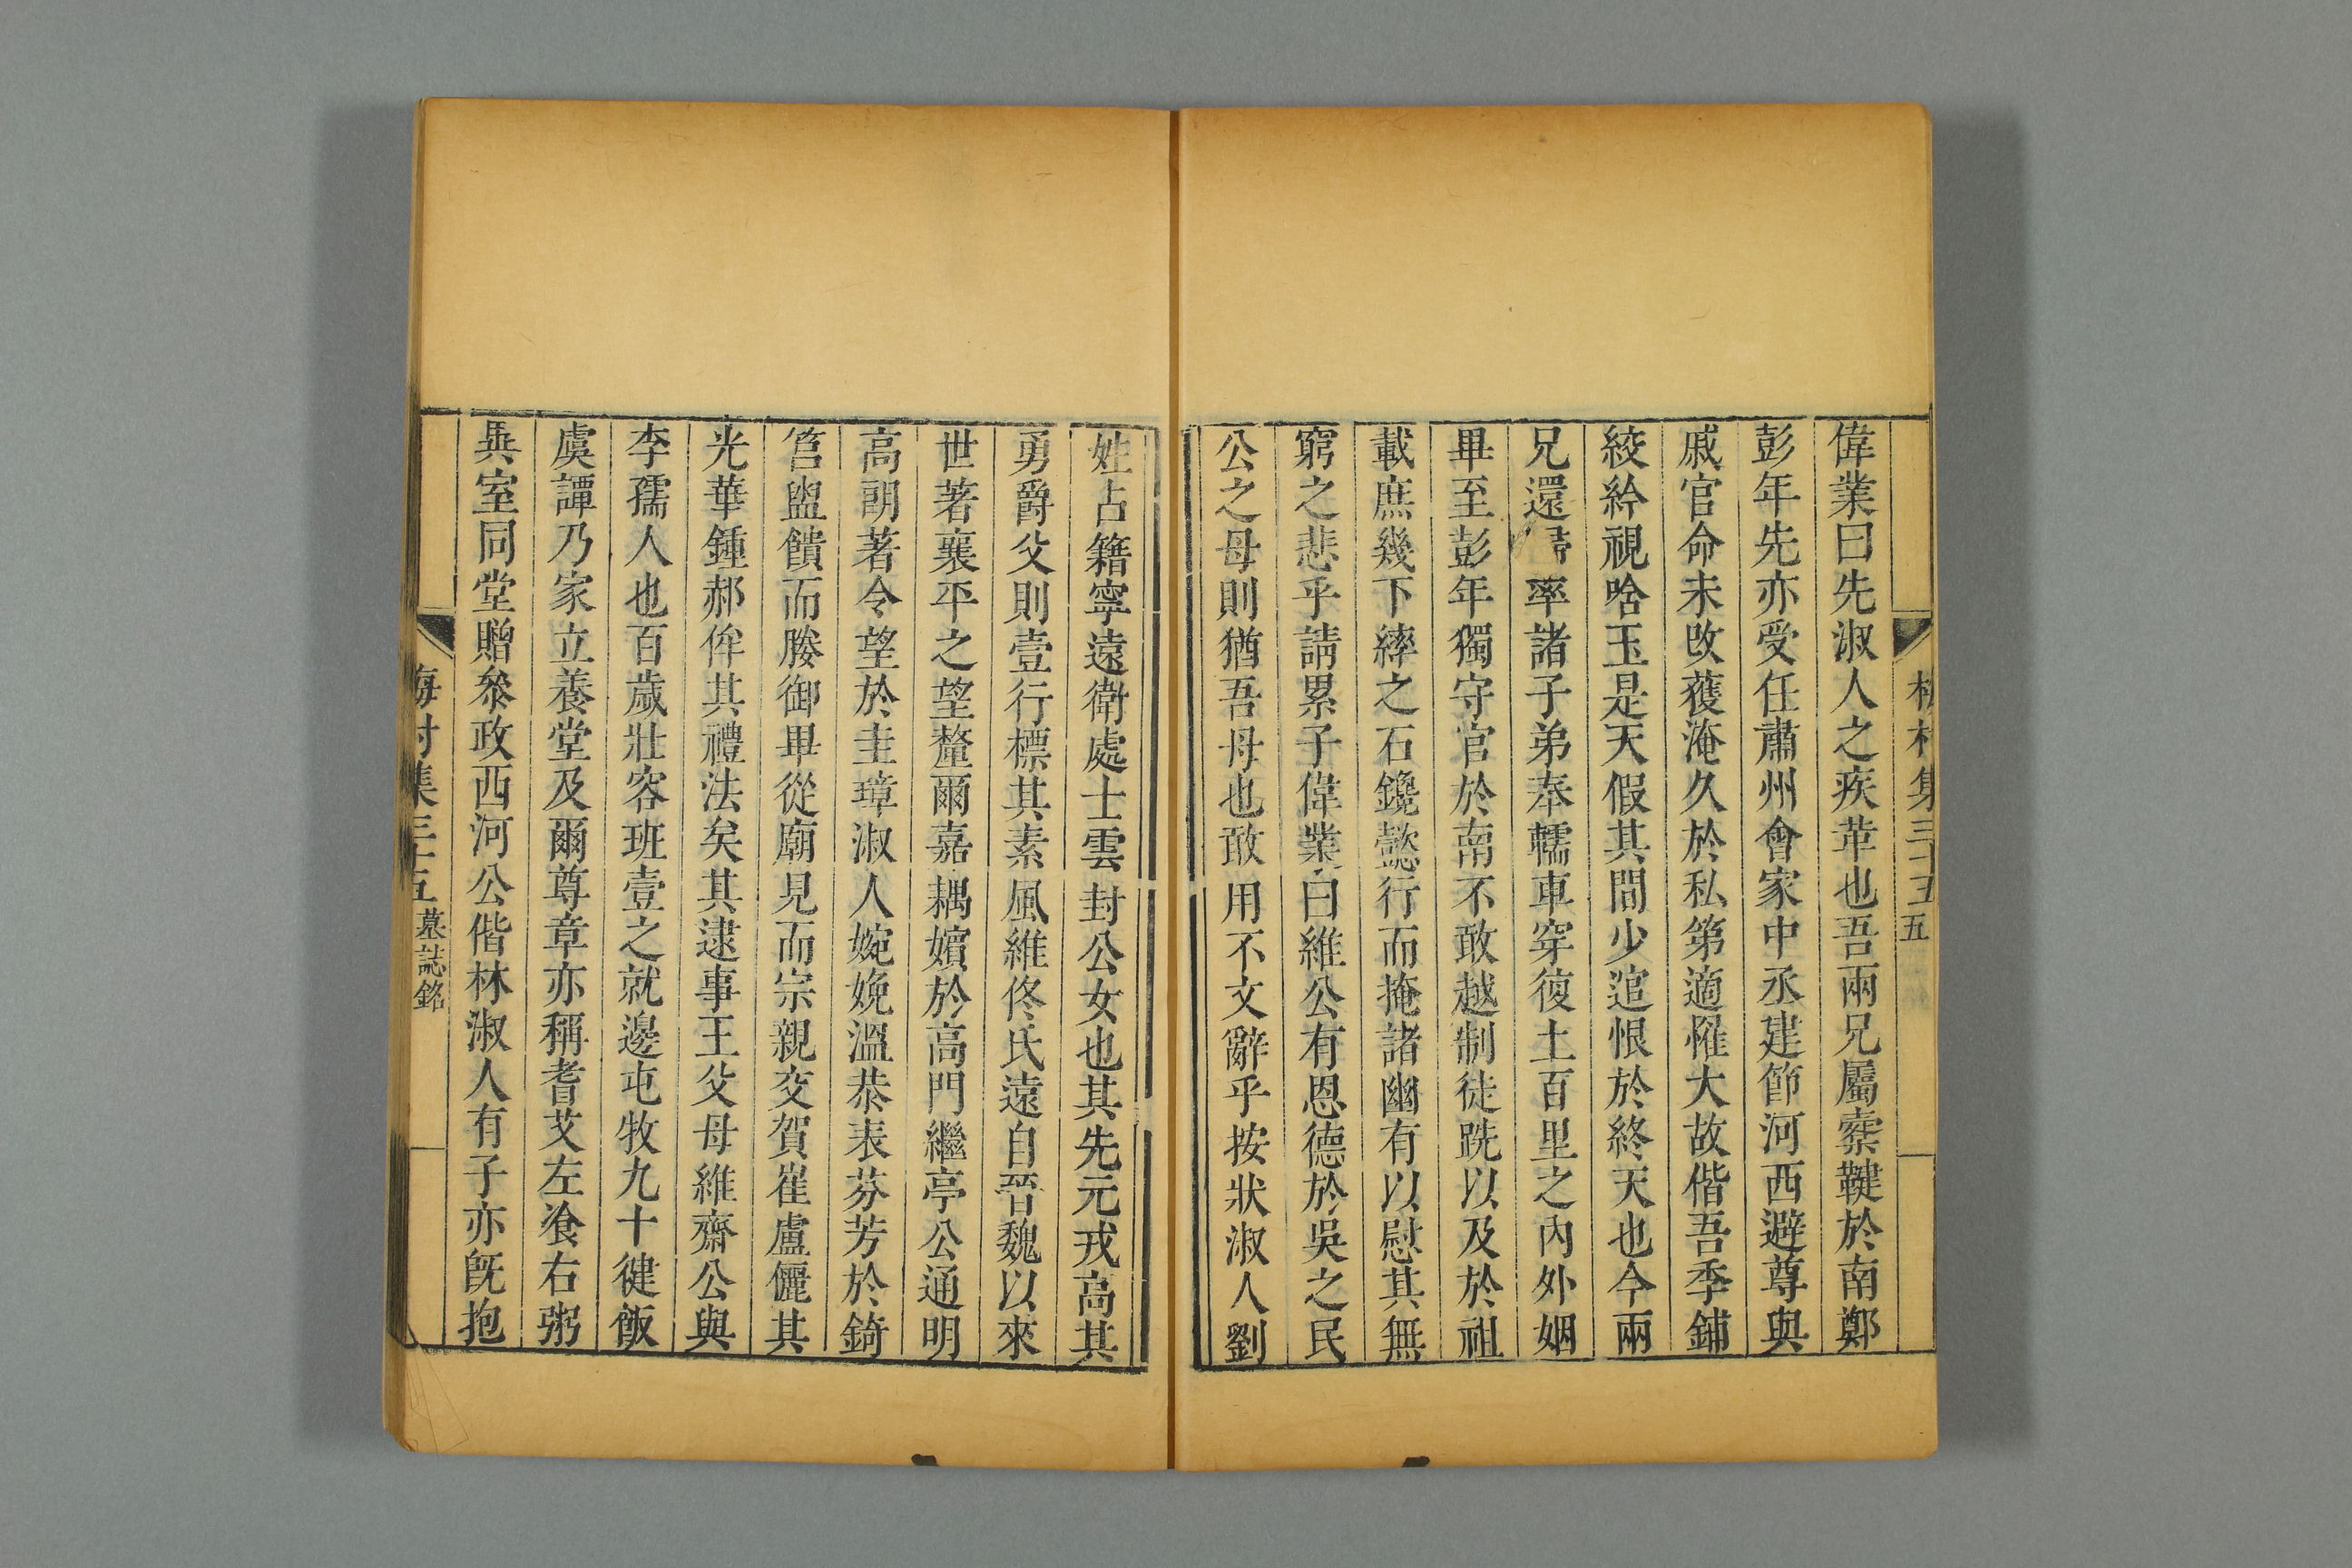 偉業曰先淑人之疾革也吾兩兄屬櫜鞬於南鄭
彭年先亦受任肅州會家中丞建節河西避尊與
戚官命未改蒦淹久於私第適罹大故偕吾季鋪
絞紟視唅玉是天假其間少逭恨於終天也今兩
兄還率諸子弟奉轜車穿復土百里之內外姻
畢至彭年獨守官於南不敢越制徒跣以及於祖
載庶幾下繂之石鑱懿行而掩諸幽有以慰其無
窮之悲乎請累子偉業曰維公有恩德於吳之民
公之母則猶吾母也敢用不文辭乎按狀淑人劉
姓占籍寧遠衛處士雲封公女也其先元戎高其
勇爵父則壹行標其素風維佟氏遠自晉魏以來
世著襄平之望釐爾嘉耦嬪於高門繼亭公通明
高朗著令望於圭璋淑人婉娩溫恭表芬芳於錡
筥盥饋而媵御畢從廟見而宗親交賀崔盧儷其
光華鍾郝侔其禮法矣其逮事王父母維齋公與
李孺人也百歲壯容班壹之就邊屯牧九十徤飯
虞譚乃家立養堂及爾尊章亦稱耆艾左飱右粥
異室同堂贈叅政西河公偕林淑人有子亦旣抱
梅村集三十五 五
梅村集三十五 墓誌銘